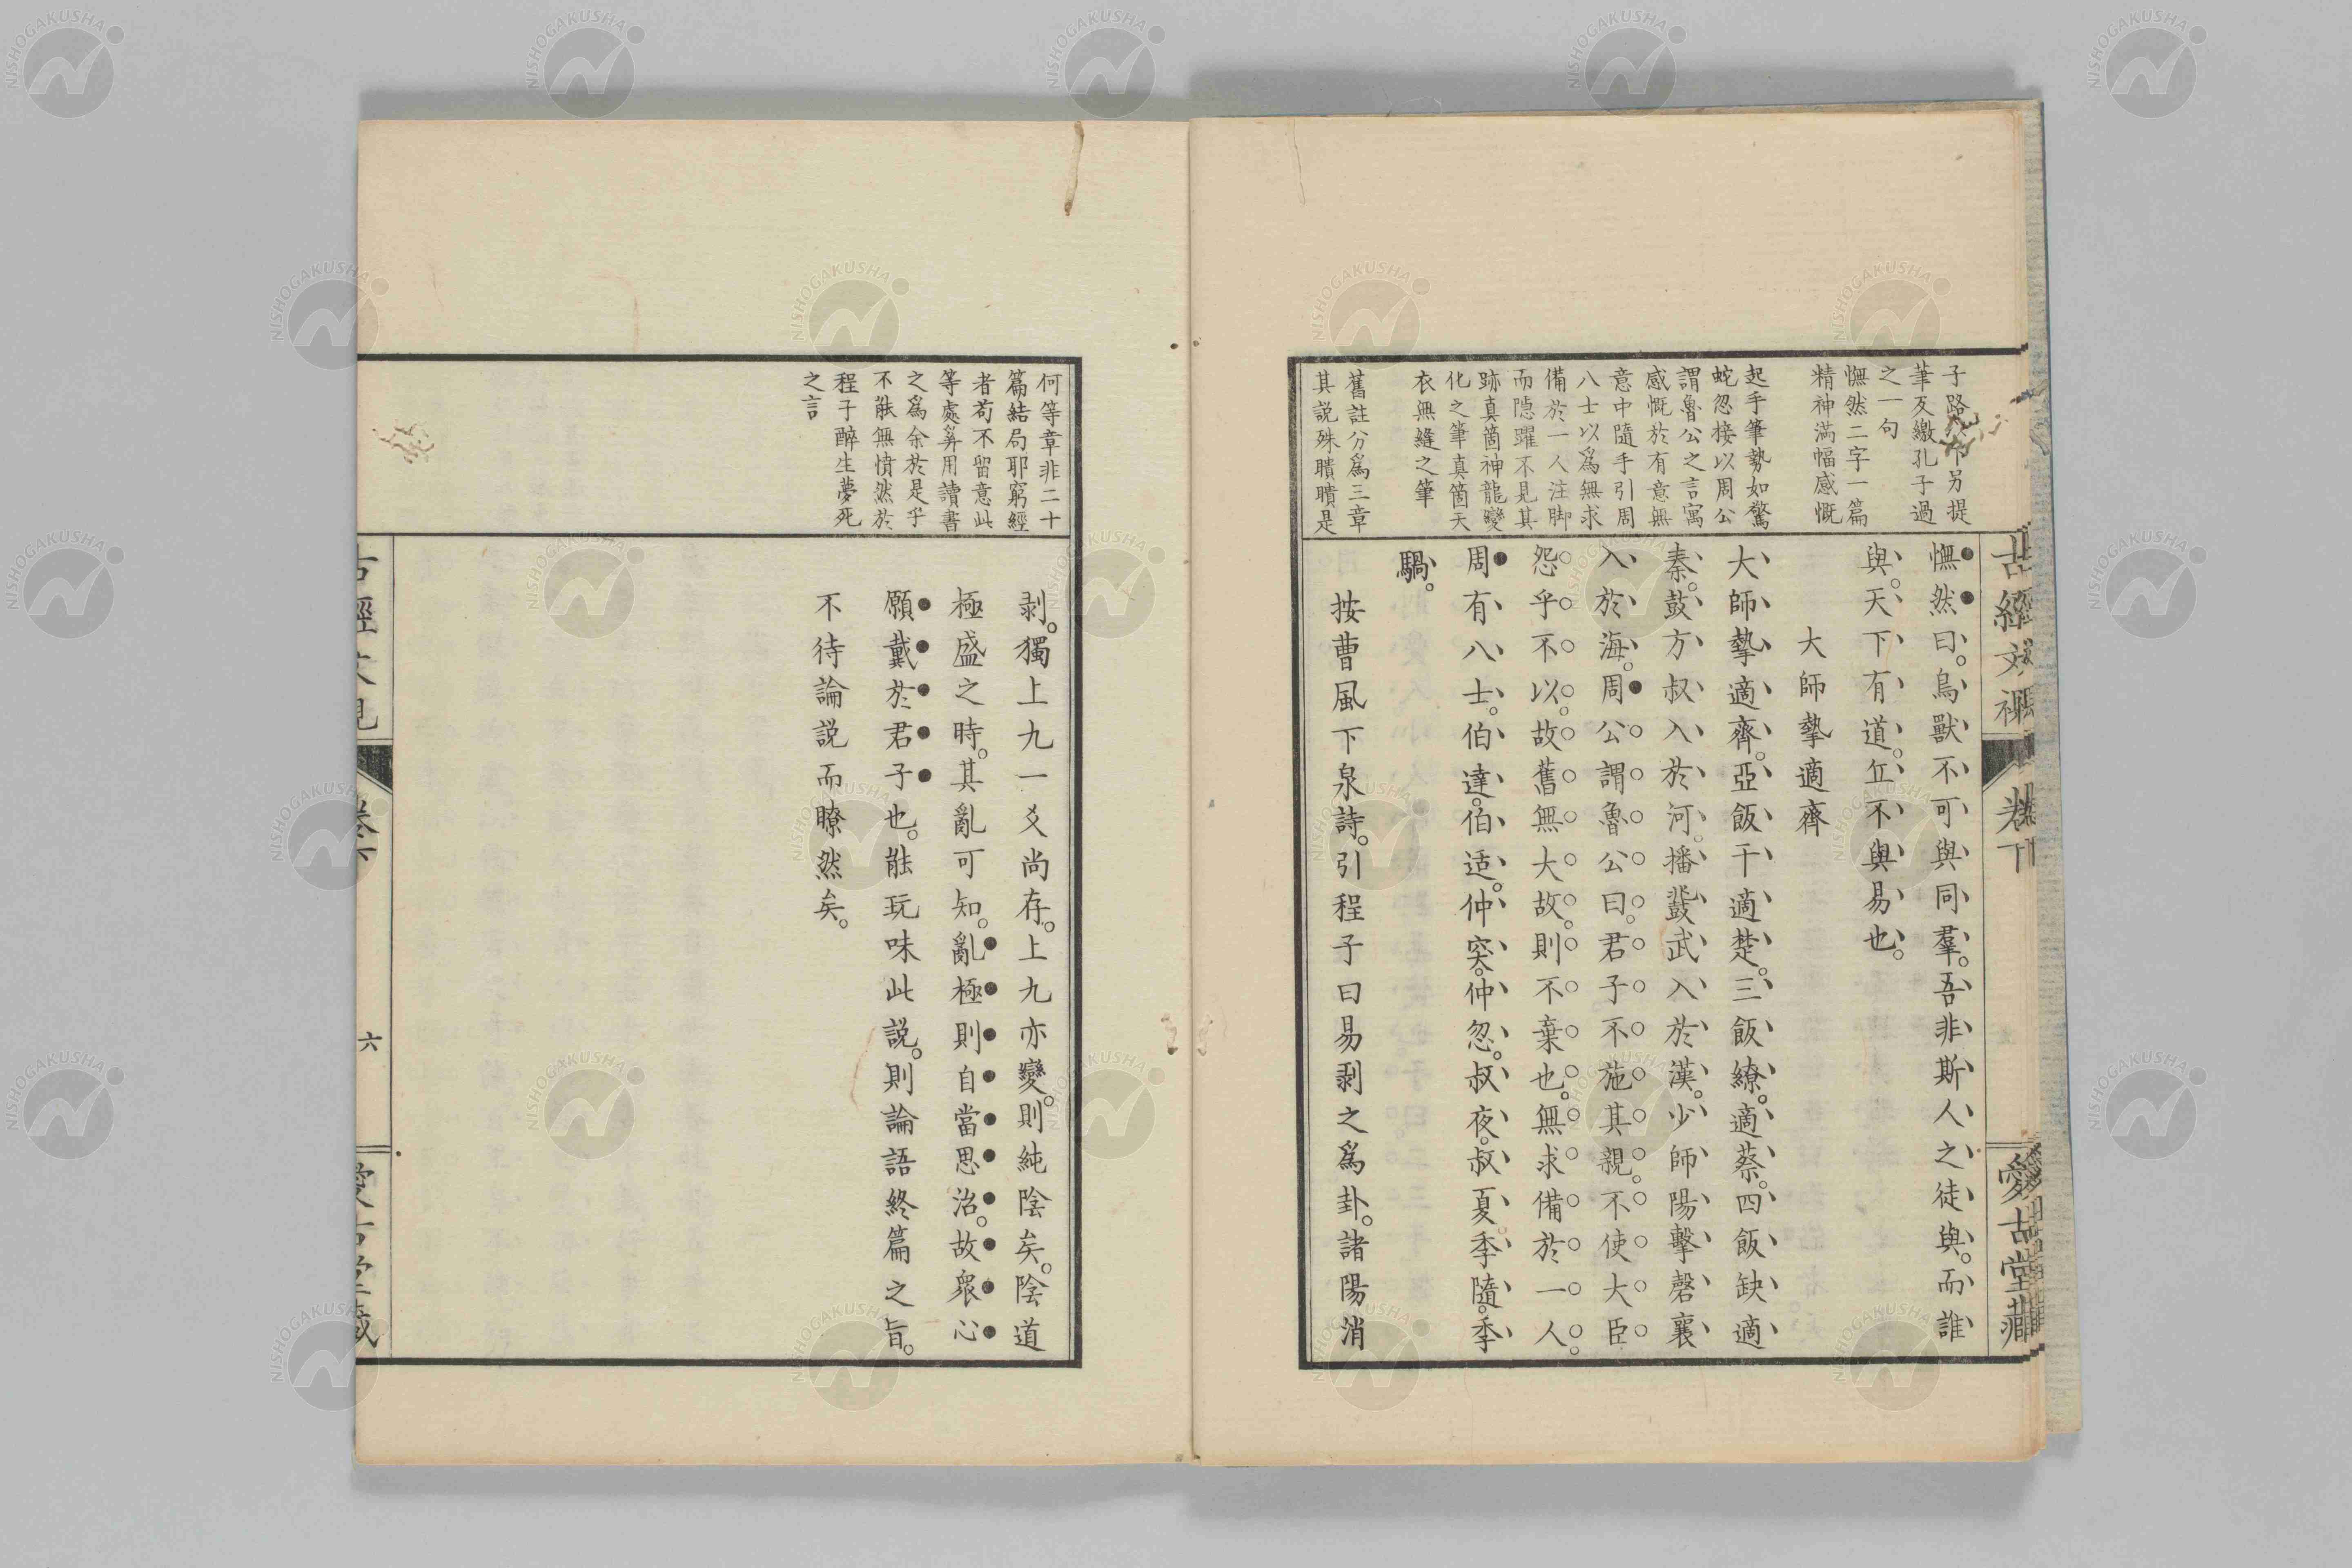 子路
下另提
筆叐繳孔子過
之一句
憮然二字一篇
精神滿幅感慨
起手筆勢如驚
蛇忽接以周公
謂魯公之言寓
感慨於有意無
意中隨手引周
八士以爲無求
備於一人注脚
而隠躍不見其
跡真箇神龍變
化之筆真箇天
衣無縫之筆
舊註分爲三章
其説殊瞶瞶是
憮然曰。鳥獸不可與同羣。吾非斯人之徒與。而誰
與。天下有道。丘不與易也。
大師摯適齊
大師摯適齊。亞飯干適楚。三飯繚。適蔡。四飯缺適
秦。鼓方叔入於河。播鼗武入於漢。少師陽擊磬襄
入於海。周公謂魯公曰。君子不施其親。不使大臣
怨乎不以。故舊無大故。則不棄也。無求備於一人。
周有八士。伯達。伯适。仲突。仲忽。叔夜。叔夏。季隨。季
騧。
按曹風下泉詩。引程子曰易剥之爲卦。諸陽消
卷下
愛古堂藏
何等章非二十
篇結局耶窮經
者苟不留意此
等處筭用讀書
之爲余於是乎
不能無憤然於
程子醉生夢死
之言
剥。獨上九一爻尚存。上九亦變。則純陰矣。陰道
極盛之時。其亂可知。亂極則自當思治。故衆心
願戴於君子也。能玩味此説。則論語終篇之旨。
不待論説而瞭然矣。
六